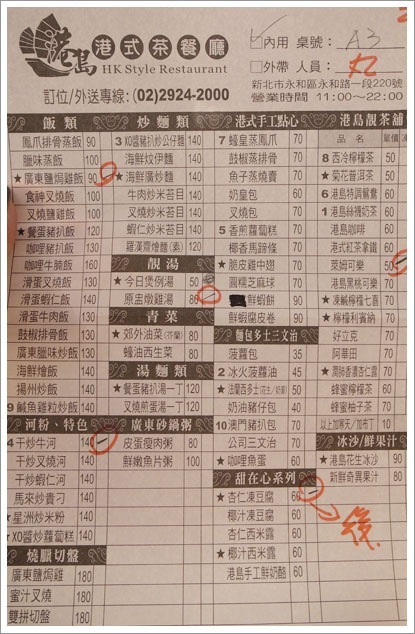 港島 港式茶餐廳
HK Style Restaurant
訂位/外送專線: (02)2924-2000
內用 桌號: A3
外帶 人員: 丸
新北市永和區永和路一段220
營業時間 11:00~22:00
飯類
鳳爪排骨蒸飯 90
臘味蒸飯 90
★廣東鹽焗雞飯 90
食神叉燒飯 100
叉燒鹽雞飯 100
★餐蛋豬扒飯 120
咖哩豬扒飯 130
咖哩牛腩飯 160
滑蛋叉燒飯 130
滑蛋蝦仁飯 140
滑蛋牛肉飯 130
鼓椒排骨飯 130
廣東臘味炒飯 130
海鮮燴飯 140
揚州炒飯 140
9 鹹魚雞粒炒飯 140
河粉、特色
4 干炒牛河 140
干炒叉燒河 140
干炒蝦仁河 140
馬來炒貴刁 140
★星洲炒米粉 140
★XO醬炒蘿蔔糕 140
燒臘切盤
廣東鹽焗雞 180
蜜汁叉燒 180
雙拼切盤 180
炒麵類
3 XO醬豬扒炒公仔麵 140
海鮮炆伊麵 140
★海鮮廣炒麵 140
牛肉炒米苔目 140
叉燒炒米苔目 140
蝦仁炒米苔目 140
羅漢齋燴麵(素) 120
靚湯
★今日煲例湯 50
原盅燉雞湯 80
青菜
★郊外油菜(芥蘭) 80
蠔油西生菜 80
湯麵類
★餐蛋豬扒湯一丁 120
叉燒煎蛋湯一丁 120
廣東砂鍋粥
皮蛋瘦肉粥 80
鮮嫩魚片粥 100
港式手工點心
7 蠔皇蒸鳳爪 70
鼓椒蒸排骨 70
魚子蒸燒賣 70
奶皇包 60
叉燒包 70
5 香煎蘿蔔糕 70
椰香馬蹄條 70
★脆皮雞中翅 70
圓糯芝麻球 70
鮮蝦餅 90
鮮蝦腐皮卷 90
麵包多士三文治
菠蘿包 35
2 冰火菠蘿油 45
★法蘭西多士(花生/奶油) 50
奶油豬仔包 40
10 澳門豬扒包 70
公司三文治 70
★咖哩魚蛋 60
甜在心系列
★杏仁凍豆腐 60
椰汁凍豆腐 60
杏仁西米露 60
★椰汁西米露 60
港島手工鮮奶酪 60
後
港島靚茶舖
品名 單
8 西冷檸檬茶 50
★菊花普洱茶 50
6 港島特調鴛鴦 60
1 港島絲襪奶茶 60
港島咖啡 60
港式紅茶拿鐵 60
萊姆可樂 50
港島黑桃可樂 70
★凍鹹檸檬七喜 70
★檸檬利賓納 70
好立克 70
阿華田 70
蜂蜜檸檬茶 60
蜂蜜柚子茶 60
冰沙/鮮果汁
★港島花生冰沙 90
新鮮奇異果汁 80